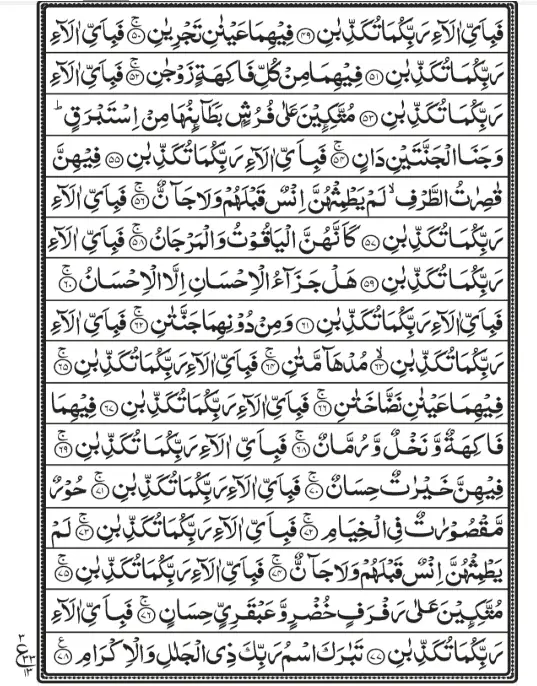 فَبِاَيِّ اٰلَآءِ رَبِّكُمَا تُكَذِّبٰنِ ﴿۴۹﴾ فِيْهِمَا عَيْنٰنِ تَجْرِيٰنِ ﴿۵۰﴾ۚ فَبِاَيِّ اٰلَآءِ
رَبِّكُمَا تُكَذِّبٰنِ ﴿۵۱﴾ فِيْهِمَا مِنْ كُلِّ فَاكِهَةٍ زَوْجٰنِ ﴿۵۲﴾ۚ فَبِاَيِّ اٰلَآءِ
رَبِّكُمَا تُكَذِّبٰنِ ﴿۵۳﴾ مُتَّكِـِٕيْنَ عَلٰى فُرُشٍۭ بَطَآىِٕنُهَا مِنْ اِسْتَبْرَقٍ ؕ
وَجَنَا الْجَنَّتَيْنِ دَانٍ ﴿۵۴﴾ۚ فَبِاَيِّ اٰلَآءِ رَبِّكُمَا تُكَذِّبٰنِ ﴿۵۵﴾ فِيْهِنَّ
قٰصِرٰتُ الطَّرْفِ ۙ لَمْ يَطْمِثْهُنَّ اِنْسٌ قَبْلَهُمْ وَلَا جَآنٌّ ﴿۵۶﴾ۚ فَبِاَيِّ اٰلَآءِ
رَبِّكُمَا تُكَذِّبٰنِ ﴿۵۷﴾ كَاَنَّهُنَّ الْيَاقُوْتُ وَالْمَرْجَانُ ﴿۵۸﴾ۚ فَبِاَيِّ اٰلَآءِ
رَبِّكُمَا تُكَذِّبٰنِ ﴿۵۹﴾ هَلْ جَزَآءُ الْاِحْسَانِ اِلَّا الْاِحْسَانُ ﴿۶۰﴾ۚ
فَبِاَيِّ اٰلَآءِ رَبِّكُمَا تُكَذِّبٰنِ ﴿۶۱﴾ وَمِنْ دُوْنِهِمَا جَنَّتٰنِ ﴿۶۲﴾ۚ فَبِاَيِّ اٰلَآءِ
رَبِّكُمَا تُكَذِّبٰنِ ﴿۶۳﴾ۙ مُدْهَآمَّتٰنِ ﴿۶۴﴾ۚ فَبِاَيِّ اٰلَآءِ رَبِّكُمَا تُكَذِّبٰنِ ﴿۶۵﴾ۚ
فِيْهِمَا عَيْنٰنِ نَضَّاخَتٰنِ ﴿۶۶﴾ۚ فَبِاَيِّ اٰلَآءِ رَبِّكُمَا تُكَذِّبٰنِ ﴿۶۷﴾ فِيْهِمَا
فَاكِهَةٌ وَّنَخْلٌ وَّرُمَّانٌ ﴿۶۸﴾ۚ فَبِاَيِّ اٰلَآءِ رَبِّكُمَا تُكَذِّبٰنِ ﴿۶۹﴾ۚ
فِيْهِنَّ خَيْرٰتٌ حِسَانٌ ﴿۷۰﴾ۚ فَبِاَيِّ اٰلَآءِ رَبِّكُمَا تُكَذِّبٰنِ ﴿۷۱﴾ۚ حُوْرٌ
مَّقْصُوْرٰتٌ فِى الْخِيَامِ ﴿۷۲﴾ۚ فَبِاَيِّ اٰلَآءِ رَبِّكُمَا تُكَذِّبٰنِ ﴿۷۳﴾ۚ لَمْ
يَطْمِثْهُنَّ اِنْسٌ قَبْلَهُمْ وَلَا جَآنٌّ ﴿۷۴﴾ۚ فَبِاَيِّ اٰلَآءِ رَبِّكُمَا تُكَذِّبٰنِ ﴿۷۵﴾ۚ
مُتَّكِـِٕيْنَ عَلٰى رَفْرَفٍ خُضْرٍ وَّعَبْقَرِيٍّ حِسَانٍ ﴿۷۶﴾ۚ فَبِاَيِّ اٰلَآءِ
رَبِّكُمَا تُكَذِّبٰنِ ﴿۷۷﴾ تَبٰرَكَ اسْمُ رَبِّكَ ذِى الْجَلٰلِ وَالْاِكْرَامِ ﴿۷۸﴾ۧ
۳
ع
۳۳
۱۳